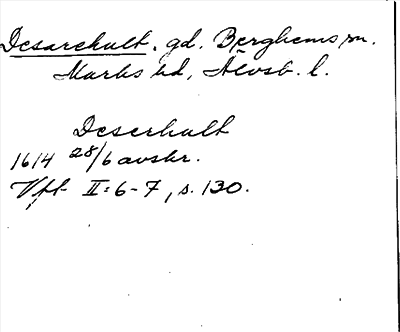 Desarehult. gd. Berghems sn.
Marks hd, Älvsb. l.
Deserhult
1614 28/6 avskr.
Vft II:6-7, s. 130.